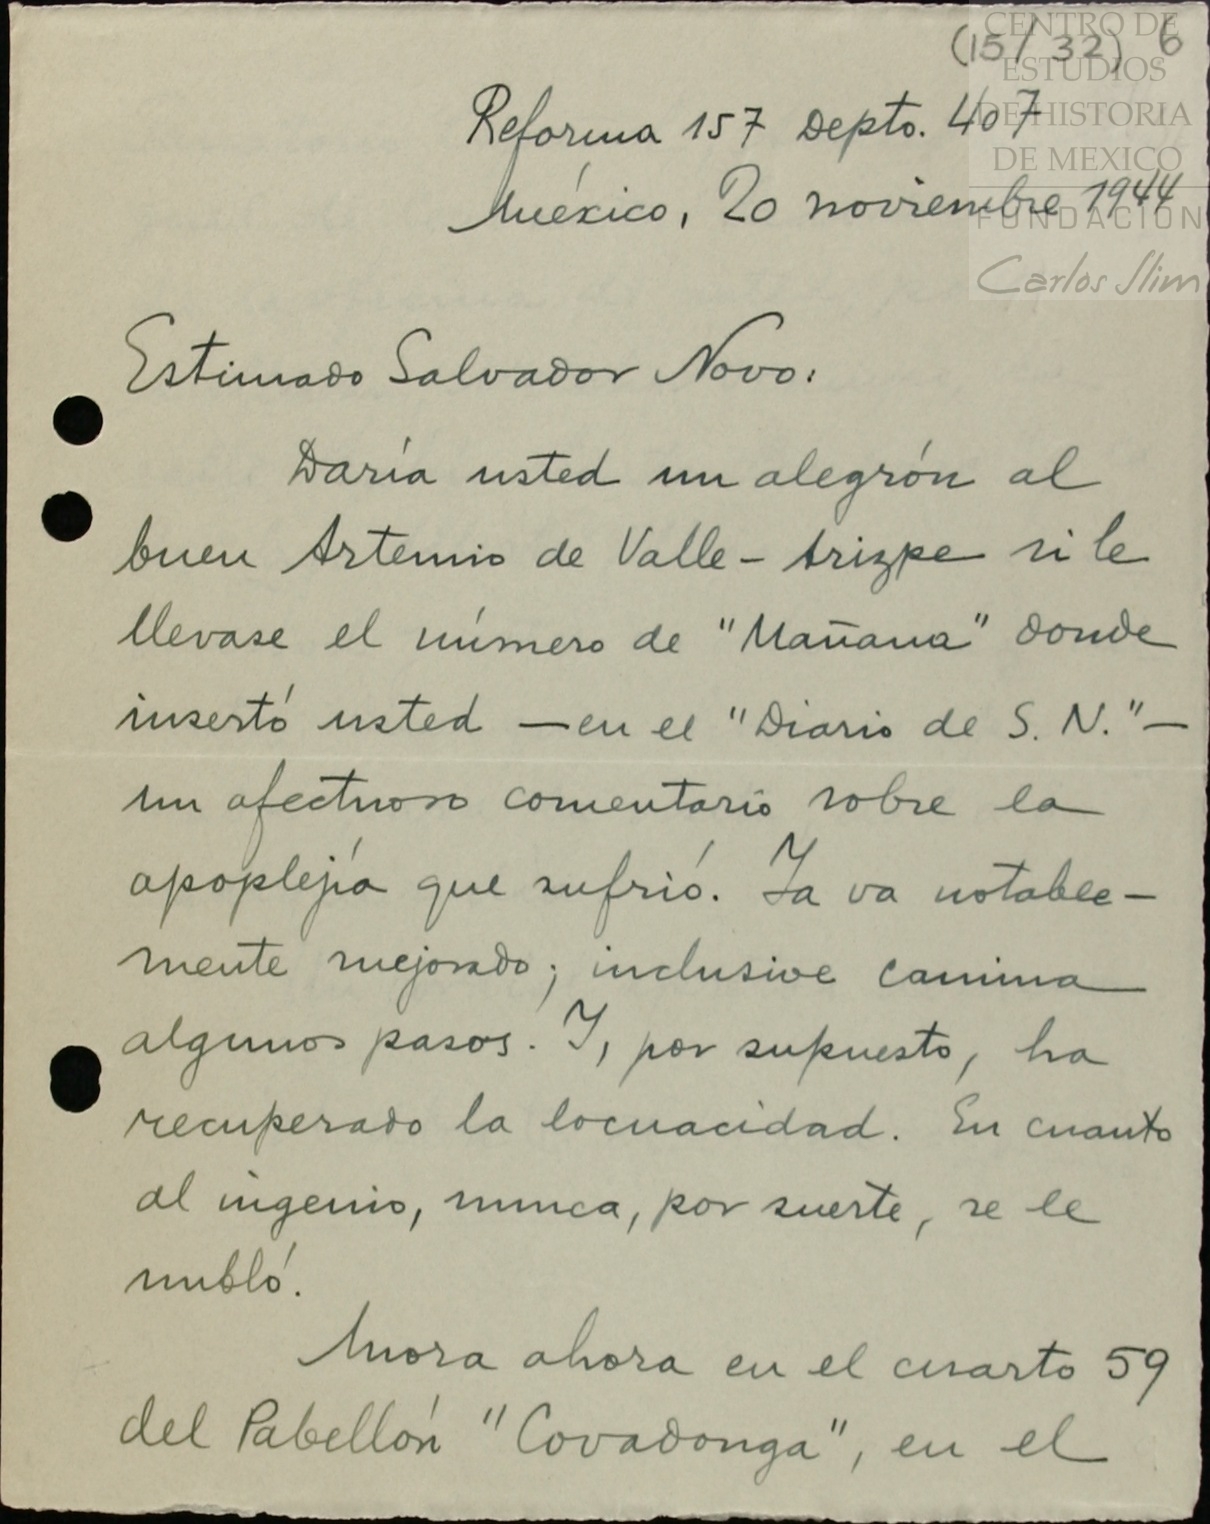 (15/32) 6
CENTRO DE
ESTUDIOS
DE HISTORIA
DE MEXICO
FUNDACIÓN
Carlos Slim
Reforma 157 Depto. 407
México, 20 noviembre 1944
Estimado Salvador Novo:
Daría usted un alegrón al
buen Artemio de Valle-Arizpe si le
llevase el número de "Mañana" donde
insertó usted —en el "Diario de S. N."—
un afectuoso comentario sobre la
apoplejía que sufrió. Ya va notable-
mente mejorado; inclusive camina
algunos pasos. Y, por supuesto, ha
recuperado la locuacidad. En cuanto
al ingenio, nunca, por suerte, se le
nubló.
Mora ahora en el cuarto 59
del Pabellón "Covadonga", en el